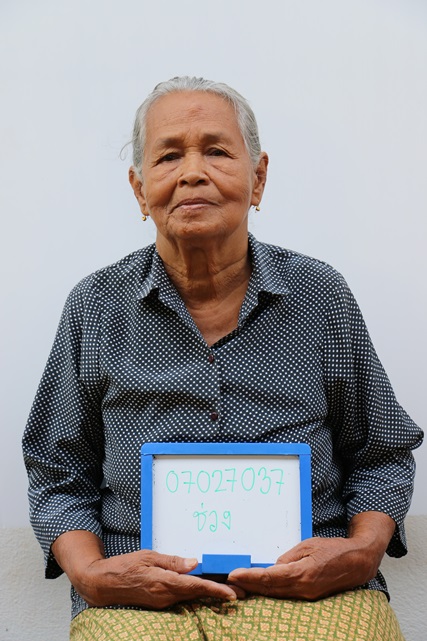 07027037
ช่วง